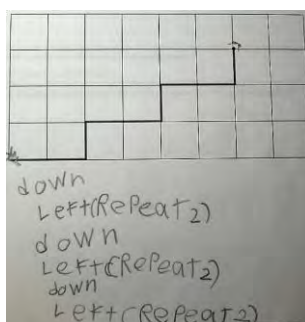 down
Left(Repeat2)
down
Left(Repeat2)
down
Left(Repeat2)